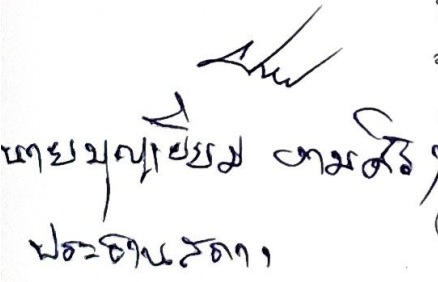 นายบุญเยี่ยม งามศิริ
ประธานสภาฯ